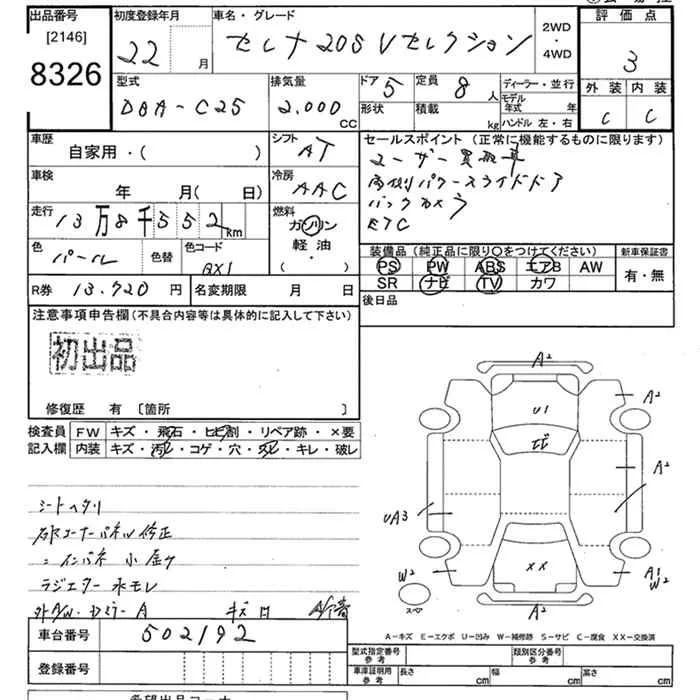 出品番号 初度登録年月 車名・グレード 2WD・4WD 評価点
[2146]
8326 22 月 セレナ 20S Vセレクション 3
型式 排気量 ドア 5 定員 8 人 ディーラー・並行 外装 内装
DBA-C25 2,000 CC 形状 積載 kg モデル年式 年 C C
ハンドル 左・右
車歴 シフト セールスポイント (正常に機能するものに限ります)
自家用・( ) AT
車検 冷房 両側パワースライドドア
年 月( 日) AAC バックカメラ
走行 燃料 ETC
13万8千552km ガソリン
軽油・
( )
色 パール 色替 色コード QX1
装備品 (純正品に限り○をつけてください) 新車保証書
PS PW ABS エアB AW 有・無
SR ナビ TV カワ
R券 13,720 円 名変期限 月 日 後日品
注意事項申告欄(不具合内容等は具体的に記入して下さい)
初出品
修復歴 有 [箇所 ]
検査員 FW キズ・飛石・ヒビ割・リペア跡・×要
記入欄 内装 キズ・汚レ・コゲ・穴・スレ・キレ・破レ
シートヘタリ
コーナーパネル修正
インパネ 小
ラジエター水モレ
A² U1 A² A² UA3 W² XX W² A²
スペア
A-キズ E-エクボ U-凹み W-補修跡 S-サビ C-腐食 XX-交換済
車台番号 502192
登録番号
型式指定番号 参考 類別区分番号 参考
車庫証明用 参考 長さ cm 幅 cm 高さ cm
希望出品コーナー